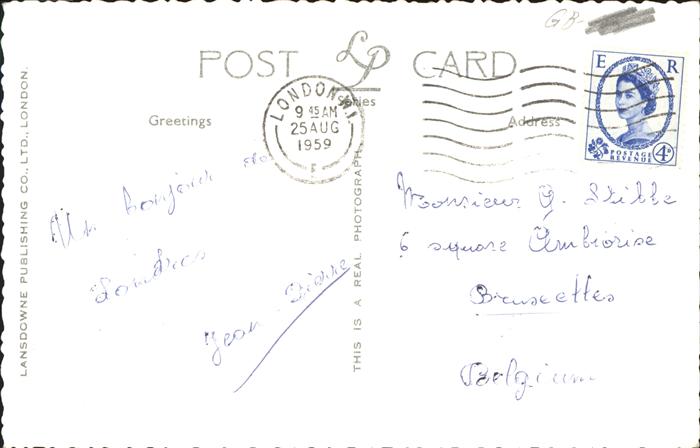 GB-
POST LP CARD
Series
Greetings
Address
LONDON
9 45 AM
25 AUG
1959
E R
POSTAGE
REVENUE
4D
Un bonjour de
Londres
Jean-Pierre
LANSDOWNE PUBLISHING CO., LTD., LONDON.
THIS IS A REAL PHOTOGRAPH
Monsieur
6 square Ambiorise
Bruxelles
Belgium